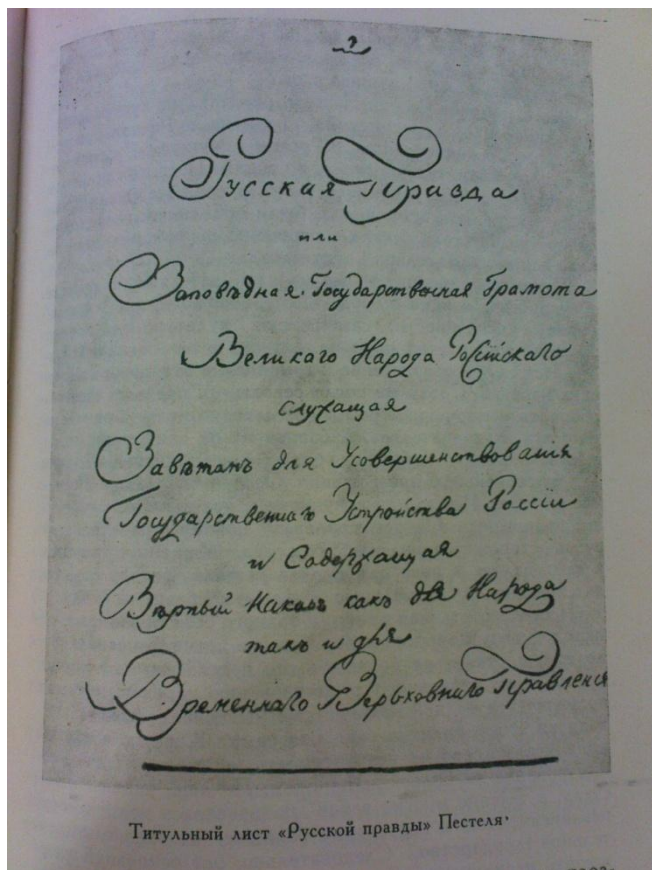 Русская Правда
или
Заповѣдная Государственная Грамота
Великаго Народа Россійскаго
служащая
Завѣтомъ для Усовершенствованія
Государственнаго Устройства Россіи
и Содержащая
Вѣрный Наказъ какъ для Народа
такъ и для
Временнаго Верьховнаго Правленія
Титульный лист «Русской правды» Пестеля.